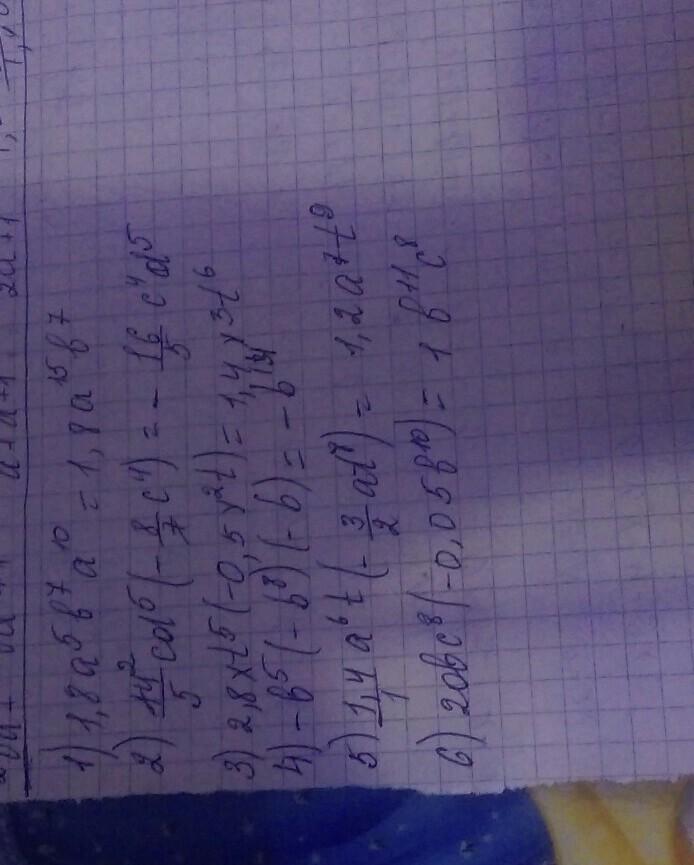 1) 1,8a⁵b⁷a¹⁰ = 1,8a¹⁵b⁷
2) 14²/5 cd⁵(-8/7 c⁴) = -16/5 c⁴d⁵
3) 2,8xt⁵(-0,5y²t) = 1,4 y³t⁶
4) -b⁵(-b⁸)(-b) = -b¹⁴
5) 1,4/1 a⁶t(-3/2 at⁸) = 1,2a⁷t⁹
6) 20bc⁸(-0,05b¹⁰) = 1 b¹¹c⁸